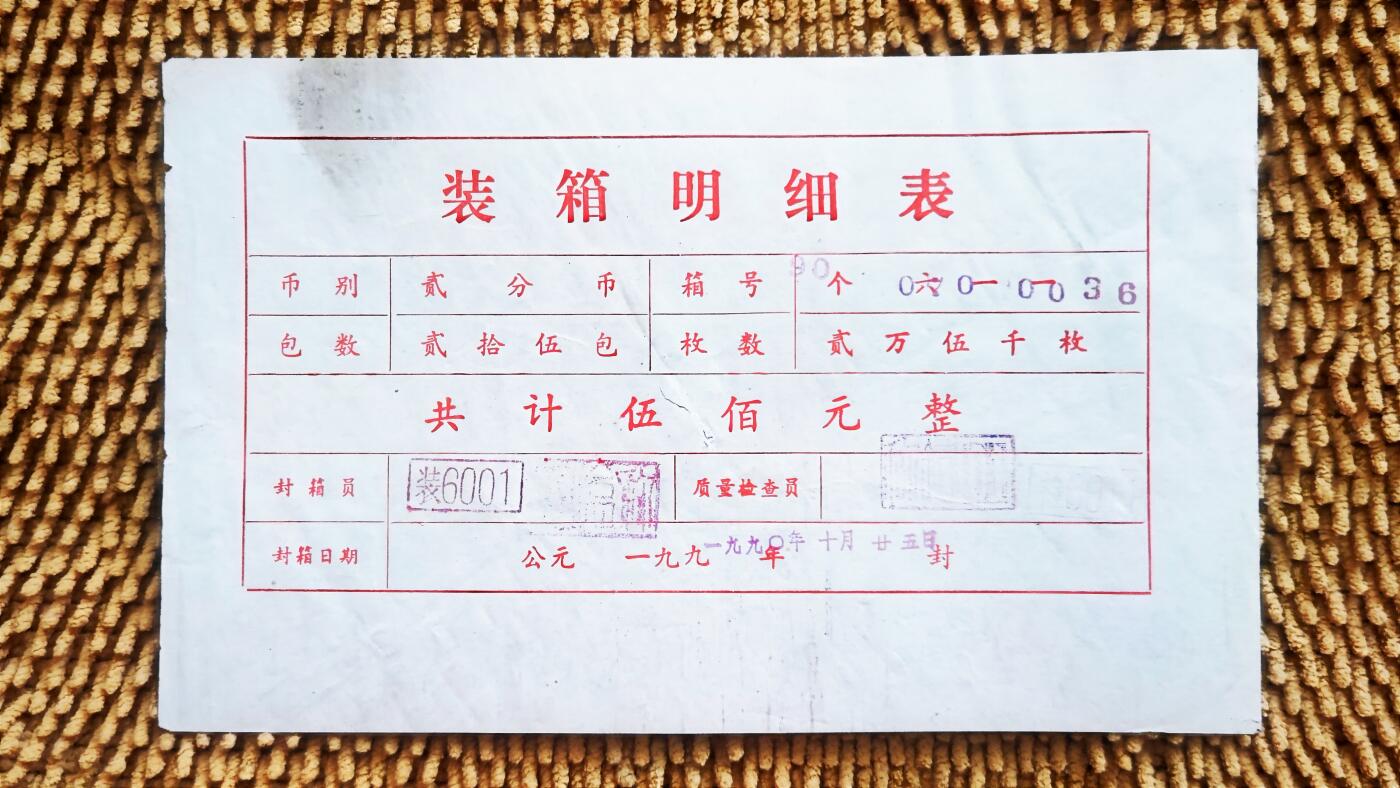 装箱明细表
币别 贰分币 箱号 90 个 六一一 0036
包数 贰拾伍包 枚数 贰万伍千枚
共计伍佰元整
封箱员 装6001 质量检查员
封箱日期 公元 一九九 年 一九九〇年 十月 廿五日 封